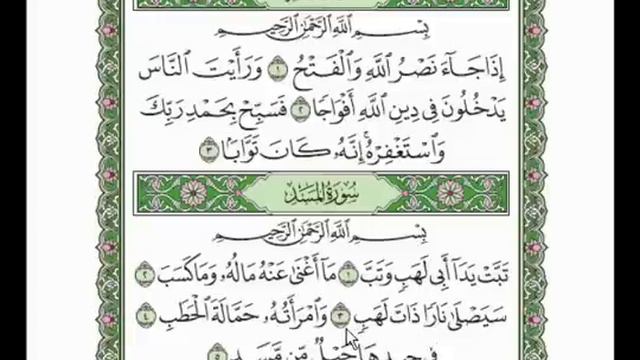 بِسْمِ ٱللَّهِ ٱلرَّحْمَٰنِ ٱلرَّحِيمِ
إِذَا جَآءَ نَصْرُ ٱللَّهِ وَٱلْفَتْحُ ١ وَرَأَيْتَ ٱلنَّاسَ
يَدْخُلُونَ فِى دِينِ ٱللَّهِ أَفْوَاجًا ٢ فَسَبِّحْ بِحَمْدِ رَبِّكَ
وَٱسْتَغْفِرْهُ ۚ إِنَّهُۥ كَانَ تَوَّابًۢا ٣
سُورَةُ المَسَدِ
بِسْمِ ٱللَّهِ ٱلرَّحْمَٰنِ ٱلرَّحِيمِ
تَبَّتْ يَدَآ أَبِى لَهَبٍ وَتَبَّ ١ مَآ أَغْنَىٰ عَنْهُ مَالُهُۥ وَمَا كَسَبَ ٢
سَيَصْلَىٰ نَارًا ذَاتَ لَهَبٍ ٣ وَٱمْرَأَتُهُۥ حَمَّالَةَ ٱلْحَطَبِ ٤
فِى جِيدِهَا حَبْلٌ مِّن مَّسَدٍۭ ٥